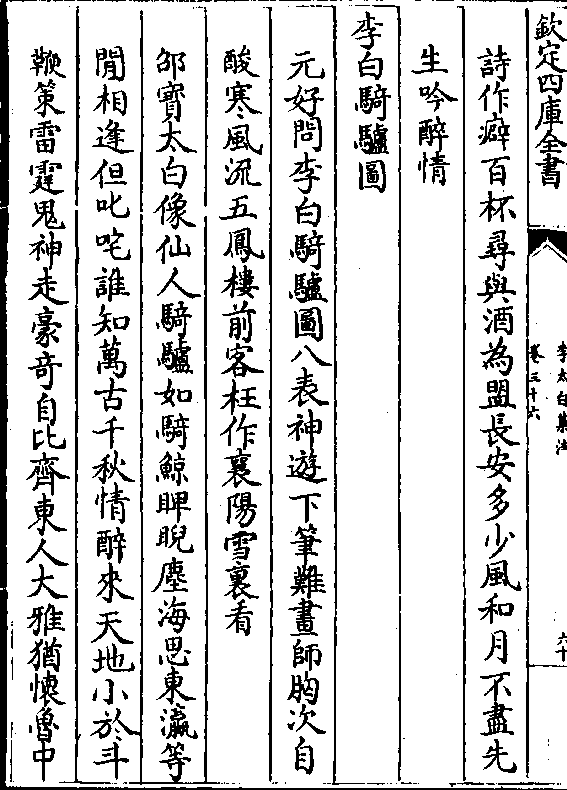 欽定四庫全書
李太白集注
卷三十六
六十
詩作癖百杯尋與酒為盟長安多少風和月不盡先
生吟醉情
李白騎驢圖
元好問李白騎驢圖八表神遊下筆難畫師胸次自
酸寒風流五鳳樓前客枉作襄陽雪裏看
邵寶太白像仙人騎驢如騎鯨睥睨塵海思東瀛等
閒相逢但叱咤誰知萬古千秋情醉來天地小於斗
鞭策雷霆鬼神走豪奇自比齊東人大雅猶懷魯中